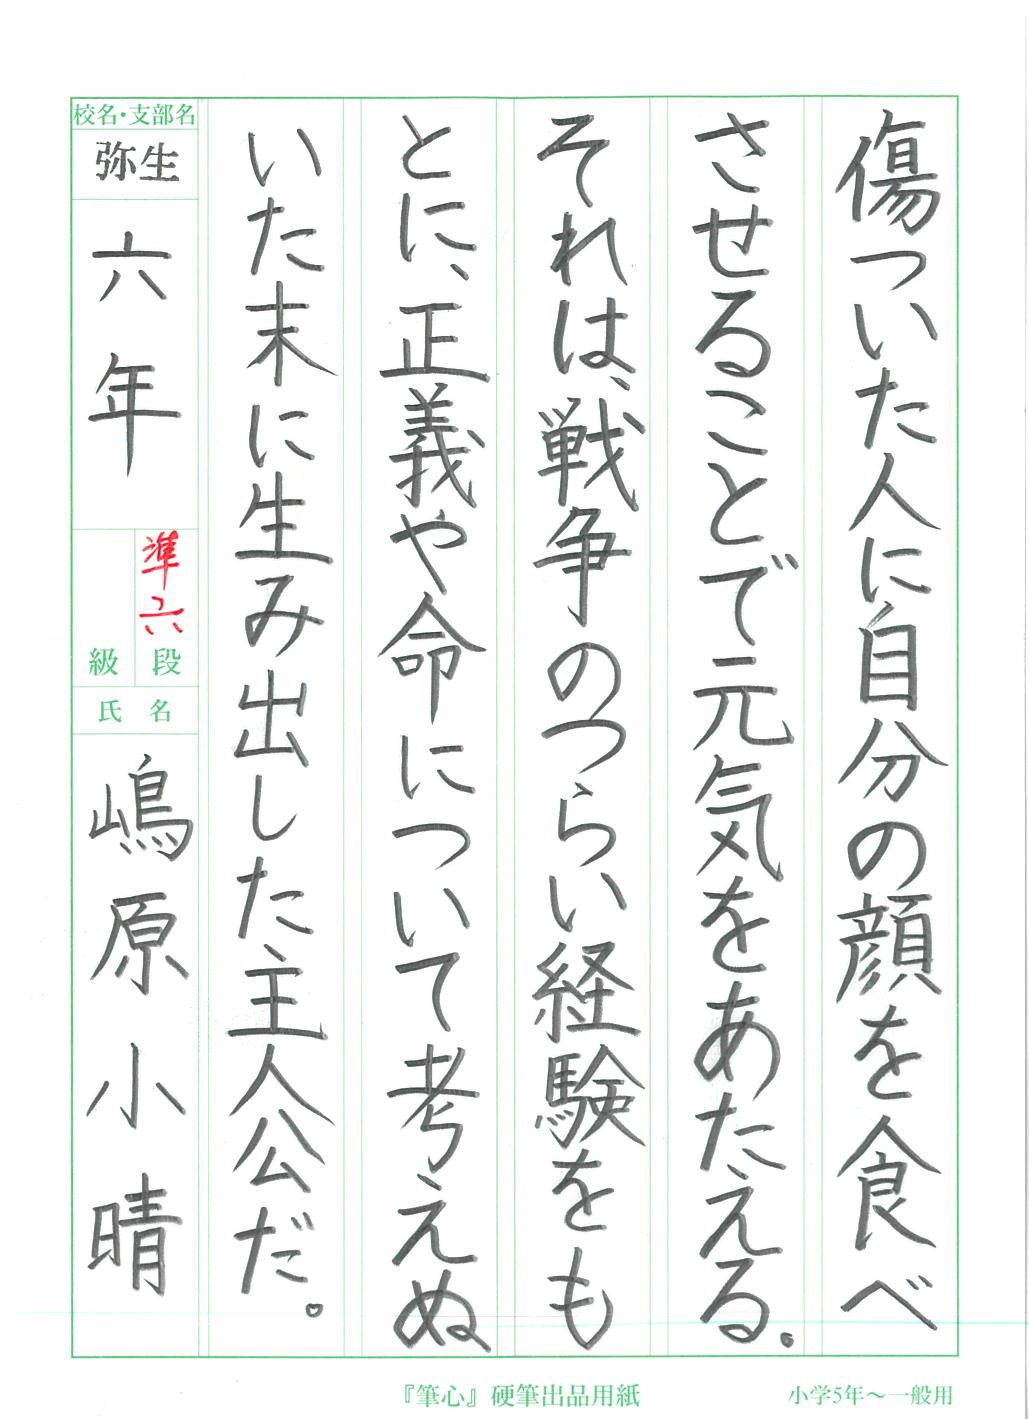 傷ついた人に自分の顔を食べ
させることで元気をあたえる。
それは、戦争のつらい経験をも
とに、正義や命について考えぬ
いた末に生み出した主人公だ。
校名・支部名
弥生
六年
準六
段
級
氏名
嶋原小晴
『筆心』硬筆出品用紙
小学5年～一般用